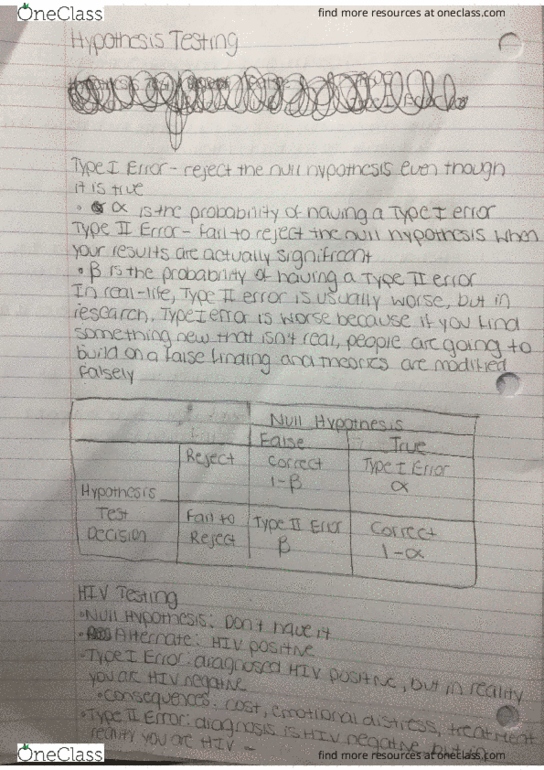 OneClass
find more resources at oneclass.com
Hypothesis Testing
Type I Error - reject the null hypothesis even though
it is true
• α is the probability of having a Type I error
Type II Error - Fail to reject the null hypothesis when
your results are actually significant
• β is the probability of having a Type II error
In real-life, Type II error is usually worse, but in
research, Type I error is worse because if you find
something new that isn't real, people are going to
build on a false finding and theories are modified
falsely
Null Hypothesis
False True
Reject Correct Type I Error
1-β α
Hypothesis
Test Fail to Type II Error Correct
Decision Reject β 1-α
HIV Testing
• Null Hypothesis: Don't have it
• Alternate: HIV positive
• Type I Error: diagnosed HIV positive, but in reality
you are HIV negative
• Consequences: cost, emotional distress, treatment
• Type II Error: diagnosis is HIV negative, but in
reality you are HIV -
OneClass
find more resources at oneclass.com